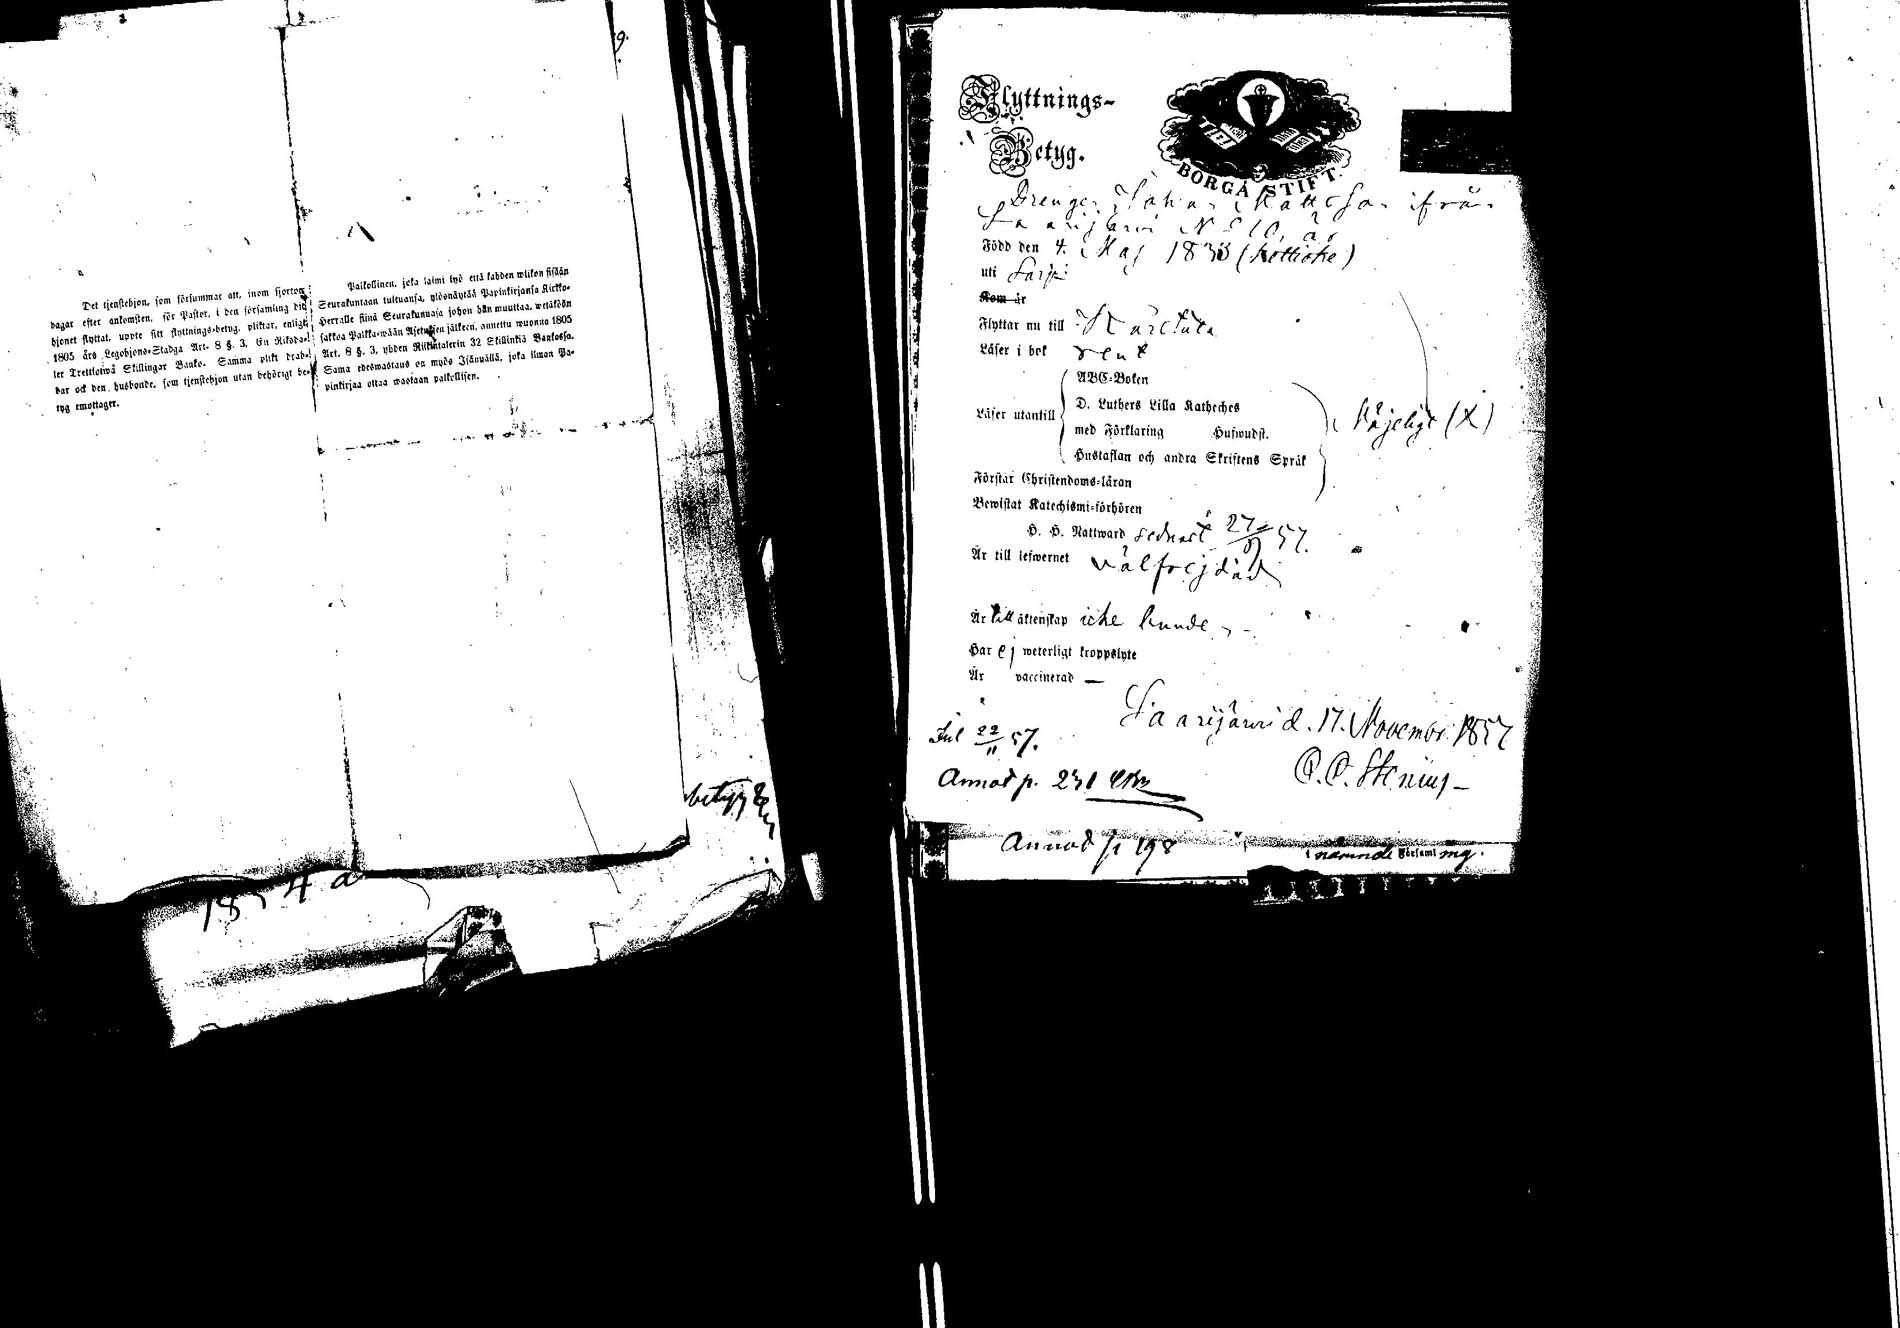 9.
Det tjenstehjon, som försummar att, inom fjorton
dagar efter ankomsten, för Pastor, i den församling dit
hjonet flyttat, uppte sitt flyttnings-betyg, pliktar, enligt
1805 års Legohjons-Stadga Art. 8 §. 3, En Riksda-
ler Trettiotwå Skillingar Banko. Samma plikt drab-
bar ock den husbonde, som tjenstehjon utan behörigt be-
tyg emottager.
Palkollinen, joka laimi lyö että kahden wiikon sisään
Seurakuntaan tultuansa, ylösnäytää Papinkirjansa Kirkko-
Herralle siinä Seurakunnasa johon hän muuttaa, wetäköön
sakkoa Palkka-wään Asetuksen jälkeen, annettu wuonna 1805
Art. 8 §. 3, yhden Riikintalerin 32 Skillinkiä Bankossa.
Sama edeswastaus on myös Isännällä, joka ilman Pa-
pinkirjaa ottaa wastaan palkollisen.
betyg
Flyttnings-
Betyg.
BORGÅ STIFT.
Drengen Johan Mattsson ifrån
Saarijärvi N:o 10, är
Född den 4. Maj 1833
uti
Kom år
Flyttar nu till Karstula
Läser i bok rent
ABC-Boken
D. Luthers Lilla Katheches
Läser utantill
med Förklaring Hufwudst.
Hustaflan och andra Skriftens Språk
Nöjeligt (X)
Förstår Christendoms-läran
Bewistat Katechismi-förhören
H. H. Nattward sednast 27/9 57.
Är till lefwernet välfrejdad
Är till äktenskap icke bunden
Har ej weterligt kroppslyte
Är vaccinerad —
Saarijärvi d. 17. November 1857
22/11 57.
C. C. Stenius
Annot p. 231
Annot p 198
i nämnde Församling.